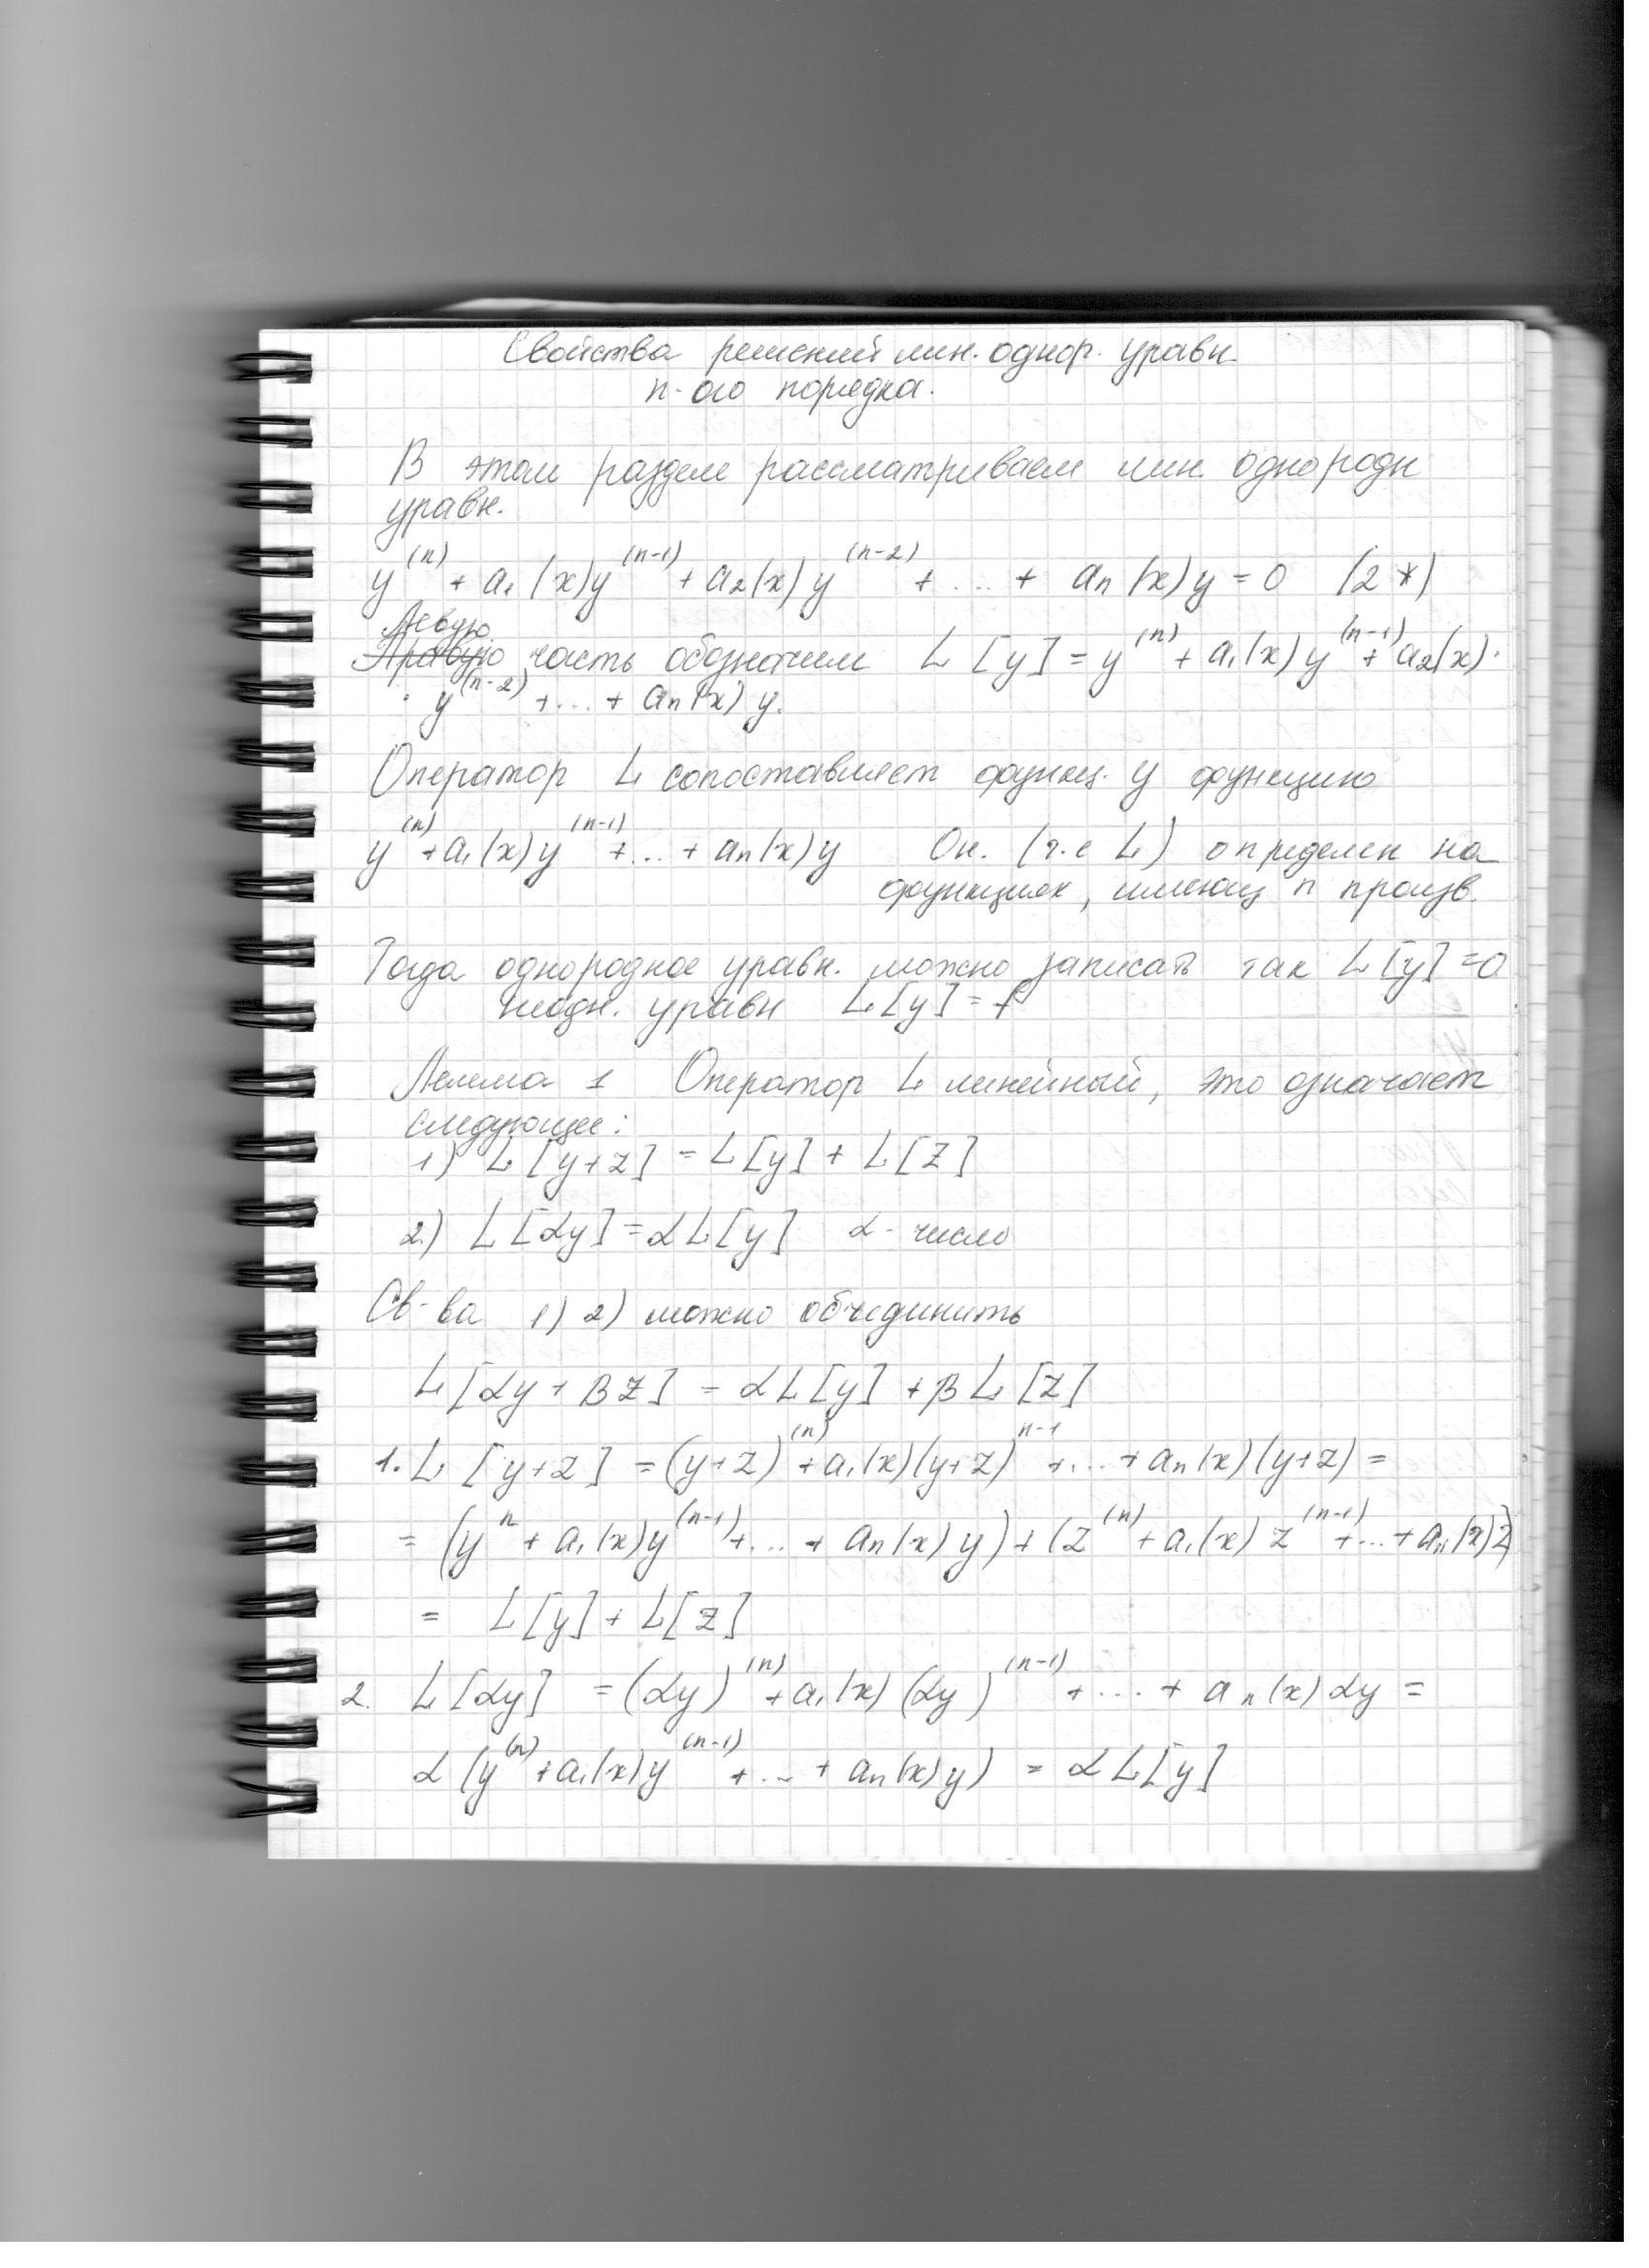 Свойства решений лин. однор. уравн.
n-ого порядка.
В этом разделе рассматриваем лин. однородн
уравн.
y⁽ⁿ⁾ + a₁(x)y⁽ⁿ⁻¹⁾ + a₂(x)y⁽ⁿ⁻²⁾ + ... + aₙ(x)y = 0 (2*)
Левую
Правую часть обозначим L[y] = y⁽ⁿ⁾ + a₁(x)y⁽ⁿ⁻¹⁾ + a₂(x)·
· y⁽ⁿ⁻²⁾ + ... + aₙ(x)y.
Оператор L сопоставляет функц. y функцию
y⁽ⁿ⁾ + a₁(x)y⁽ⁿ⁻¹⁾ + ... + aₙ(x)y Он. (т.е L) определен на
функциях, имеющ n произв.
Тогда однородное уравн. можно записать так L[y] = 0
неодн. уравн L[y] = f
Лемма 1 Оператор L линейный, это означает
следующее:
1) L[y+z] = L[y] + L[z]
2) L[αy] = αL[y] α - число
Св-ва 1) 2) можно объединить
L[αy + βz] = αL[y] + βL[z]
1. L[y+z] = (y+z)⁽ⁿ⁾ + a₁(x)(y+z)ⁿ⁻¹ + ... + aₙ(x)(y+z) =
= (yⁿ + a₁(x)y⁽ⁿ⁻¹⁾ + ... + aₙ(x)y) + (z⁽ⁿ⁾ + a₁(x)z⁽ⁿ⁻¹⁾ + ... + aₙ(x)z)
= L[y] + L[z]
2. L[αy] = (αy)⁽ⁿ⁾ + a₁(x)(αy)⁽ⁿ⁻¹⁾ + ... + aₙ(x)αy =
α(y⁽ⁿ⁾ + a₁(x)y⁽ⁿ⁻¹⁾ + ... + aₙ(x)y) = αL[y]